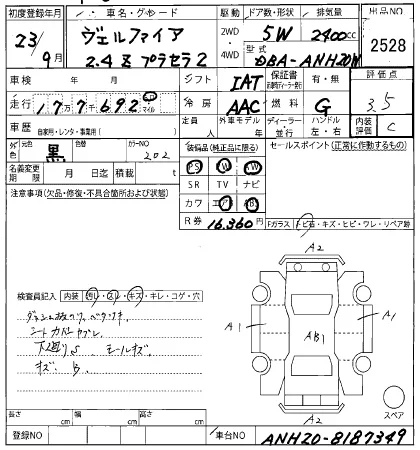 初度登録年月 車名・グレード 駆動 ドア数・形状 排気量 出品NO
23年 9月 ヴェルファイア 2WD・4WD 5W 2400cc 2528
2.4 Z プラセラ2 型式 DBA-ANH20W
車検 年 月 シフト IAT 保証書 有・無 評価点
走行 177692 km マイル 冷房 AAC 燃料 G 3.5
車歴 自家用・レンタ・事業用( ) 定員 人 外車モデル 年 ディーラー・並行 ハンドル 左・右 内装評価 C
色 元色 黒 色替 カラーNO 202 装備品(純正品に限る) セールスポイント(正常に作動するもの)
名義変更期限 月 日迄 積載 t PS PW AW
注意事項(欠品・修復・不具合箇所および状態) SR TV ナビ
カワ エアB AB
R券 16,360円 Fガラス トビ石・キズ・ヒビ・ワレ・リペア跡
A2
検査員記入 内装 ヨゴレ・スレ・キズ・キレ・コゲ・穴
A1 AB1 A1
シートカバー
下廻りS モールキズ
キズ B
スペア
長さ cm 幅 cm 高さ cm A2
登録NO 車台NO ANH20-8187349